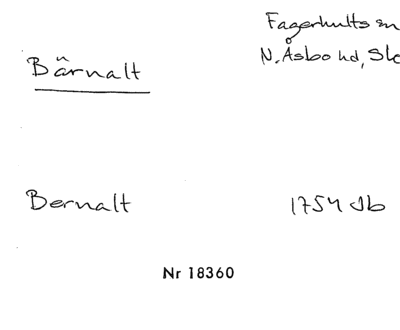 Fagerhults sn
N. Åsbo hd, Sk
Bärnalt
Bernalt 1754 Jb
Nr 18360